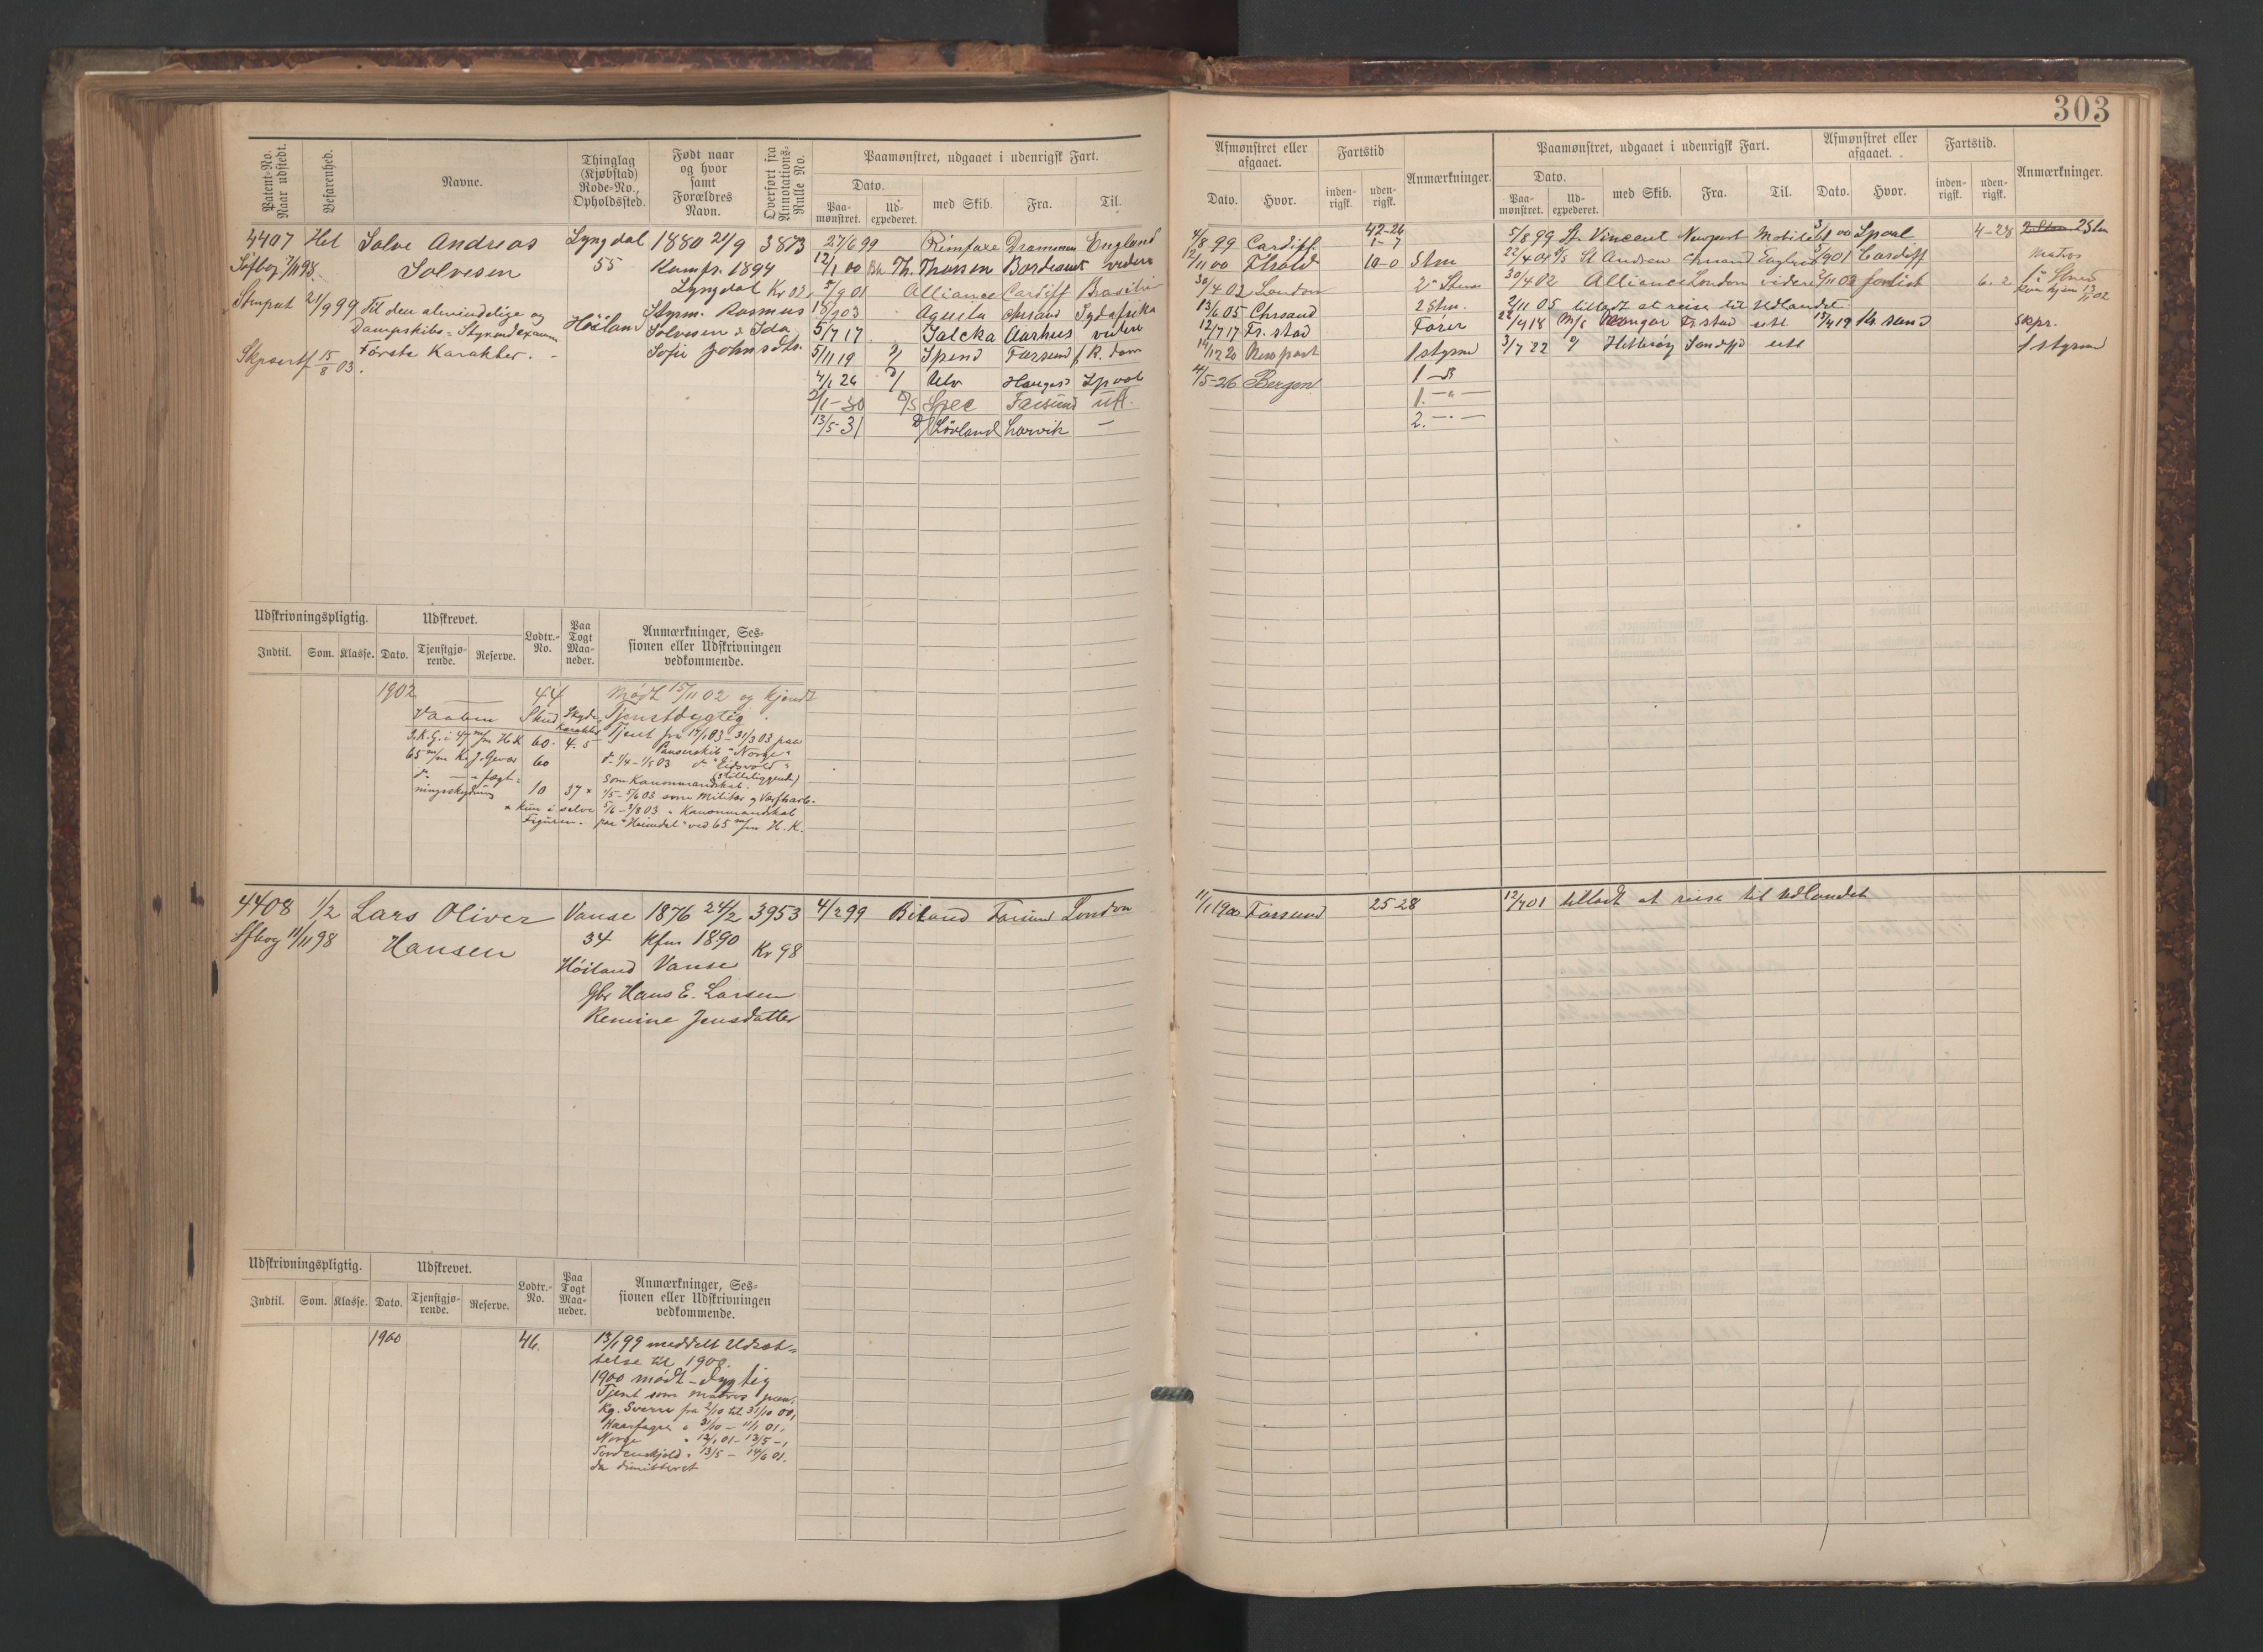 303
Patent-No. Naar udstedt.
Befarenhed.
Navne.
Thinglag (Kjøbstad) Rode-No., Opholdssted.
Født naar og hvor samt Forældres Navn.
Overført fra Annotations-Rulle No.
Paamønstret, udgaaet i udenrigsk Fart.
Dato.
Paa-mønstret.
Ud-expederet.
med Skib.
Fra.
Til.
Afmønstret eller afgaaet.
Dato.
Hvor.
Fartstid
inden-rigsk.
uden-rigsk.
Anmærkninger.
Paamønstret, udgaaet i udenrigsk Fart.
Dato.
Paa-mønstret.
Ud-expederet.
med Skib.
Fra.
Til.
Afmønstret eller afgaaet.
Dato.
Hvor.
Fartstid.
inden-rigsk.
uden-rigsk.
Anmærkninger.
4407 Hel Solve Andreas Lyngdal 1880 21/9 3873
Søfbog 7/11 98. Solvesen 55 Komfr. 1894
Lyngdal Kr 02
Stmpat 21/9 99 Til den almindelige og Høiland Styrm. Rasmus
Dampskibs-Styrmdexamen Solvesen & Ida
Første Karakter. Sofie Johnsdtr.
Skpscrtf 15/8 03.
27/6 99 Rimfaxe Drammen England
12/1 00 Th. Thorsen Bordeaux videre
5/9 01 Alliance Cardiff Brasilien
18/9 03 Agusta Chrsand Sydafrika
5/7 17 Jalcka Aarhus videre
5/11 19 D/ Spind Farsund R.dam
4/1 24 D/ Ulv Lpool
2/1-30 D/S Spec Farsund utl.
13/5-31 D/ Løvland Larvik —
4/8 99 Cardiff 42-26
1-7
12/11 00 Fhald 10-0 Stm
30/4 02 London 2 Stm
13/6 05 Chrsand 2 Stm.
12/7 17 Fr. stad Fører
14/12 20 Newport 1 styrm
4/5-26 Bergen 1 —
1. — " —
2. — " —
5/8 99 St. Vincent Newport Mobile 3/1 00 Lpool 4-28 2 Stm
22/4 01 St Andrew Chrsand England 5/9 01 Cardiff Matros
30/4 02 Alliance London videre 2/11 02 forlist 6. 2
2/11 05 tilladt at reise til Udlandet
22/4 18 M/S Fr. stad utl 15/4 19 Kr. sand Skpr.
3/7 22 D/ Hitterøy utl 1 styrm
Udskrivningspligtig.
Indtil.
Som.
Klasse.
Udskrevet.
Dato.
Tjenstgjø-rende.
Reserve.
Lodtr.-No.
Paa Togt Maa-neder.
Anmærkninger, Ses-sionen eller Udskrivningen vedkommende.
1902 44 Mødt 15/11 02 og kjendt
Vaaben Skud Skyde-karakter Tjenstdygtig.
S.K.G. i 47 m/m H.K. 60. 4.5 Tjent fra 14/1 03 - 31/3 03 paa
Panserskib "Norge"
65 m/m K. J. Gevær 60 do 1/4 - 1/5 03 do "Eidsvold"
(stilleliggende)
do — " — fægt- som Kanonmandskab.
ningsskydning 10 37 x 1/5 - 5/6 03 som Militær & Værftsarb.
x kun i selve 5/6 - 3/8 03 " Kanonmandskab
Figuren. paa "Heimdal" ved 65 m/m H.K.
4408 1/2 Lars Oliver Vanse 1876 24/2 3953 4/2 99 Biland Farsund London
Sfbog 11/11 98 Hansen 34 Kfm 1890 Kr 98
Høiland Vanse
Gbr Hans E. Larsen
Remine Jensdatter
11/1 1900 Farsund 25 28 12/7 01 tilladt at reise til Udlandet
Udskrivningspligtig.
Indtil.
Som.
Klasse.
Udskrevet.
Dato.
Tjenstgjø-rende.
Reserve.
Lodtr.-No.
Paa Togt Maa-neder.
Anmærkninger, Ses-sionen eller Udskrivningen vedkommende.
1900 46. 13/1 99 meddelt Udsæt-
telse til 1900.
1900 mødt - dygtig
Tjent som matros paa
Kg. Sverre fra 2/10 til 31/10 00,
Haarfagre " 31/10 - 11/1 01,
Norge " 12/1 01 - 13/5 -,
Tordenskjold " 13/5 - 14/6 01.
da dimitteret